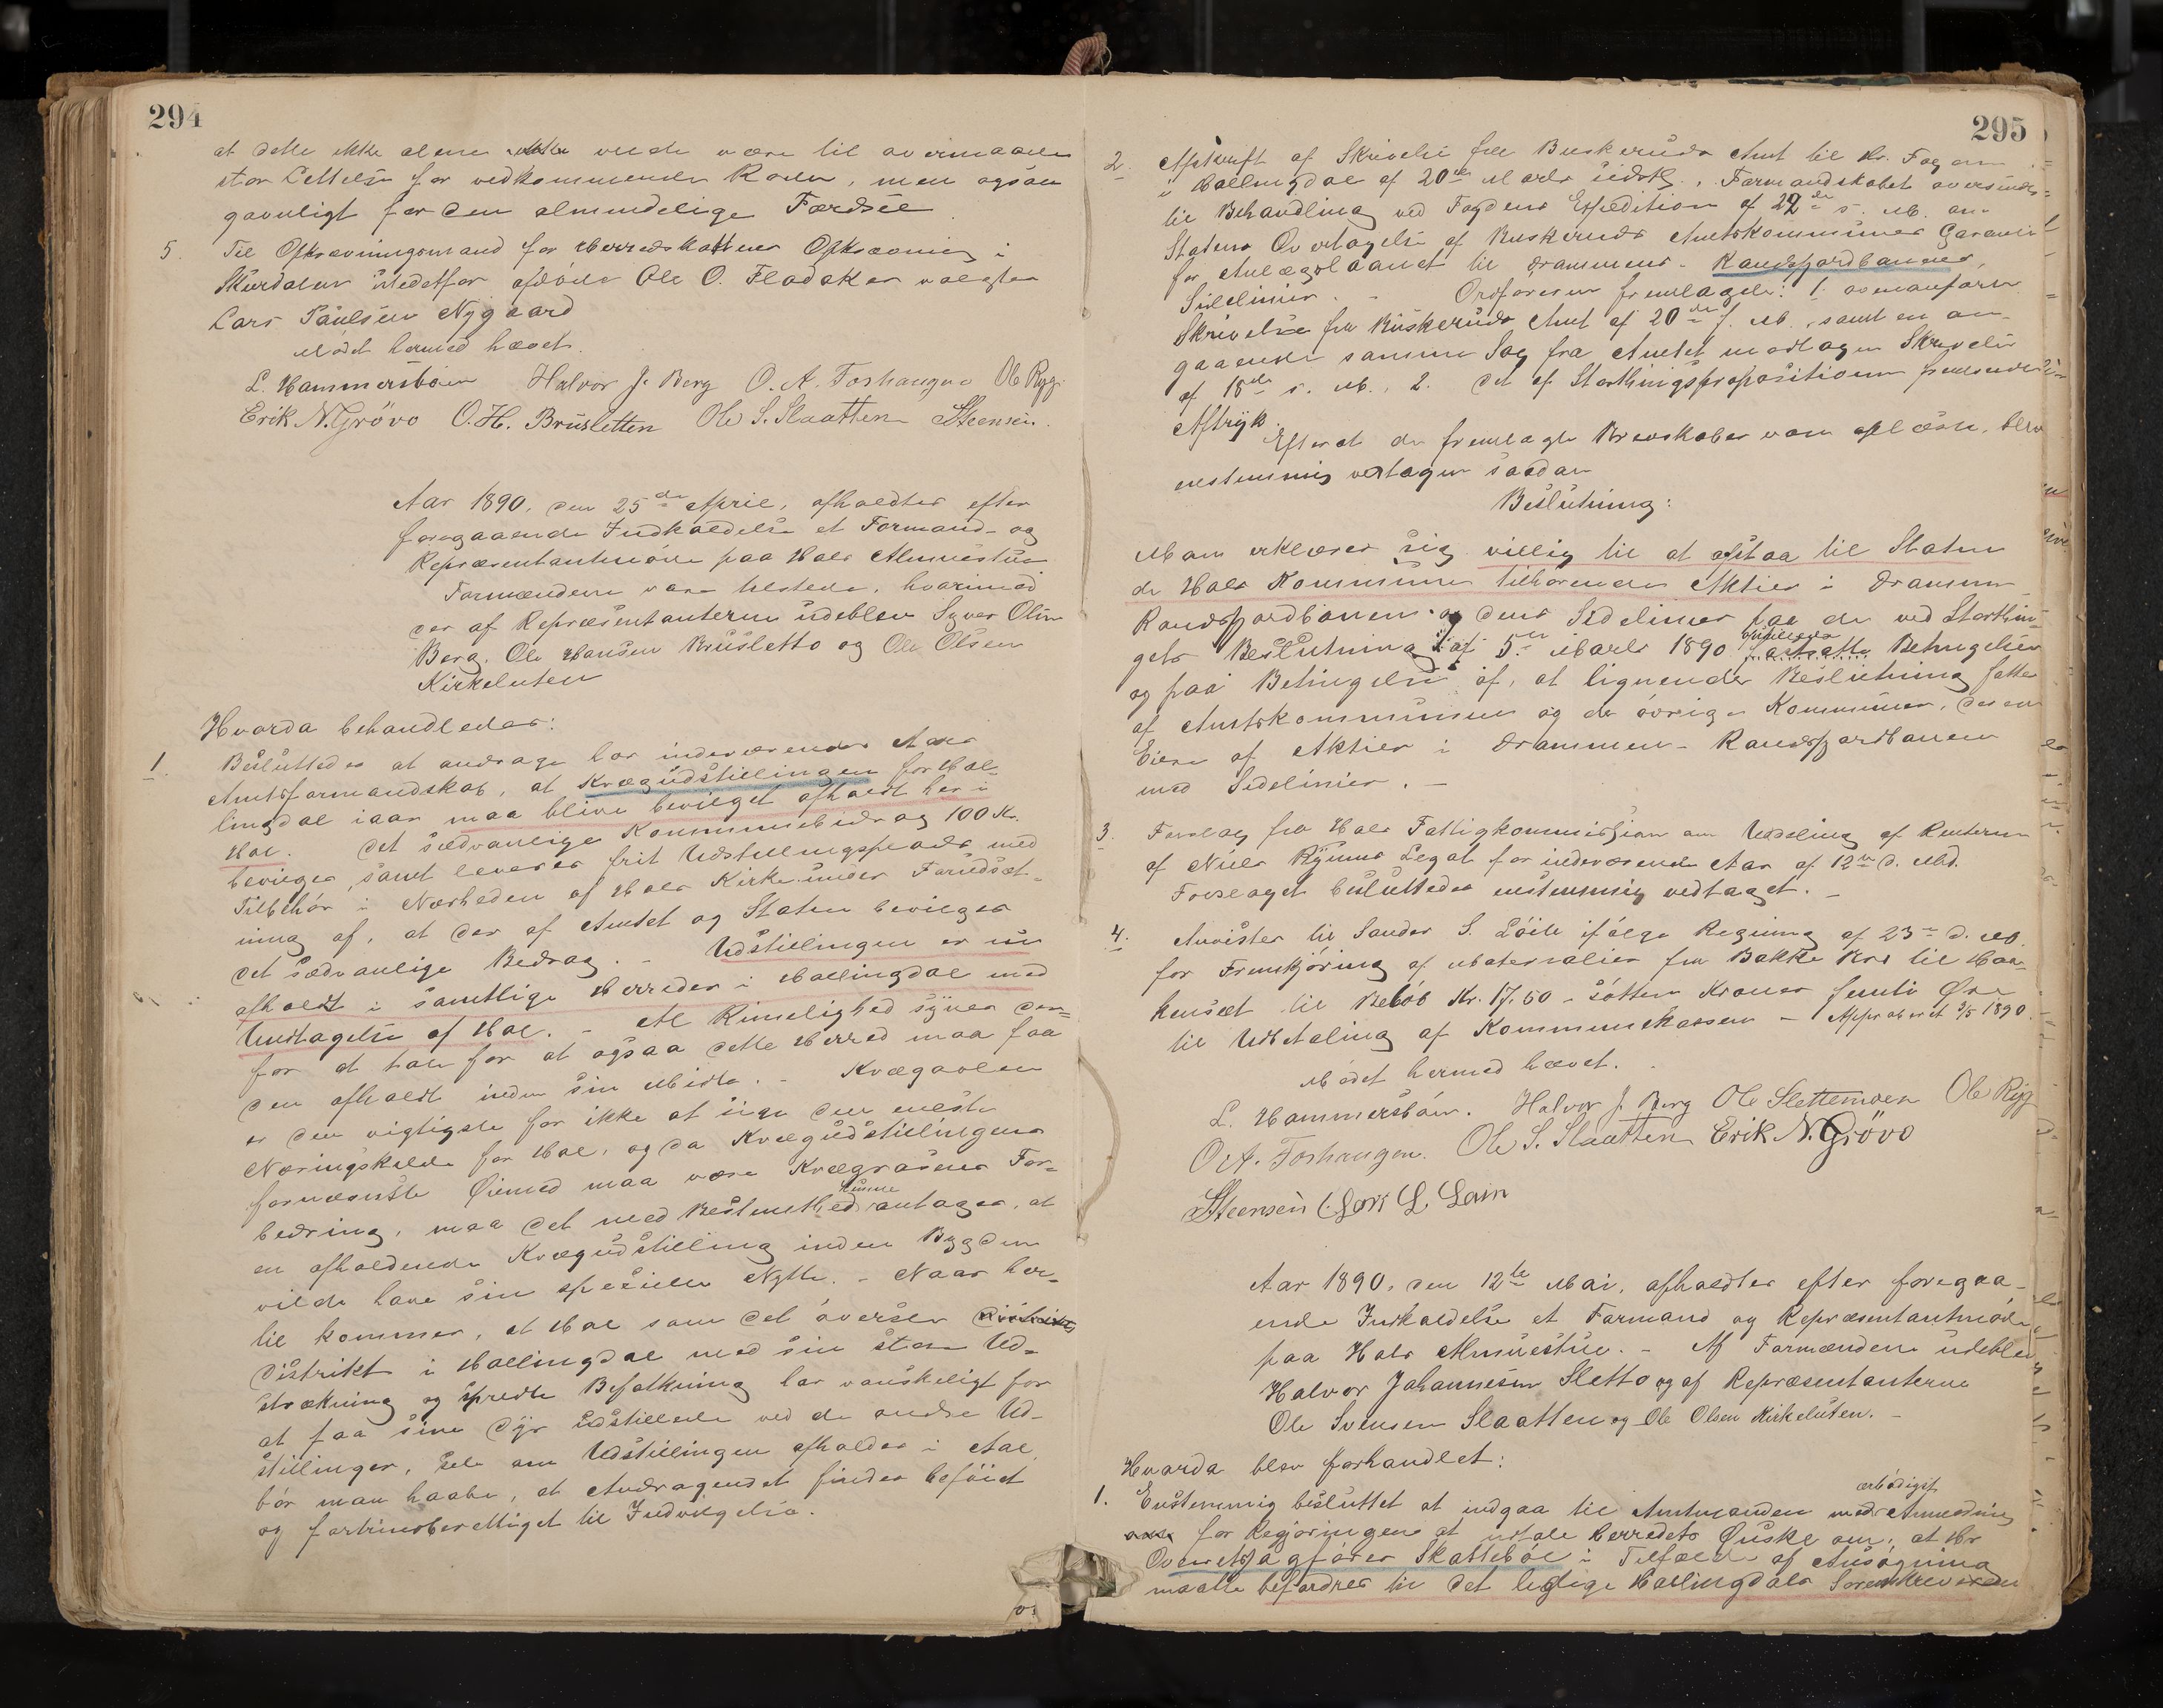 294
at dette ikke alene vilde være til overmaade
stor Lettelse for vedkommende Roder, men ogsaa
gavnligt for den almindelige Færdsel
5. Til Opkrævningsmand for Herredskattens Opkrævning i
Skurdalen istedetfor afdøde Ole O. Fladaker valgtes
Lars Paulsen Nygaard
Mødet hermed hævet.
L. Hammersbøen Halvor J. Berg O. A. Foshaugen Ole Rygg
Erik N. Grövo O. H. Brusletten Ole S. Slaatten Steensen.
Aar 1890, den 25de April, afholdtes efter
foregaaende Indkaldelse et Formand- og
Repræsentantmøde paa Hols Almuestue
Formændene vare tilstede, hvorimod
der af Repræsentanterne udeblev Syver Olsen
Berg, Ole Hansen Brusletto og Ole Olsen
Kirkeluten
Hvorda behandledes:
1. Besluttedes at andrage for indeværende Aars
Amtsformandskab, at Kvægudstillingen for Hal-
lingdal iaar maa blive bevilget afholdt her i
Hol. Det sædvanlige Kommunebidrag 100 Kr.
bevilges, samt leveres frit Udstillingsplads med
Tilbehør i Nærheden af Hols Kirke under Forudsæt-
ning af, at der af Amtet og Staten bevilges
det sædvanlige Bidrag. - Udstillingen er nu
afholdt i samtlige Herreder i Hallingdal med
Undtagelse af Hol. - Al Rimelighed synes der-
for at tale for at ogsaa dette Herred maa faa
den afholdt inden sin Midte. - Kvægavlen
er den vigtigste for ikke at sige den eneste
Næringskilde for Hol, og da Kvægudstillingens
fornemste Øiemed maa være Kvægracens For-
bedring, maa det med Bestemthed kunne antages, at
en afholdende Kvægudstilling inden Bygden
vilde have sin specielle Nytte. - Naar her-
til kommer, at Hol som det øverste
Distrikt i Hallingdal med sin store Ud-
strækning og spredte Befolkning har vanskeligt for
at faa sine Dyr udstillede ved de andre Ud-
stillinger, selv om Udstillingen afholdes i Aal
bør man haabe, at Andragendet findes beføiet
og fortrinsberettiget til Indvilgelse.
295
2. Afskrift af Skrivelse fra Buskeruds Amt til Hr. Fogden
i Hallingdal af 20de Marts sidstl., Formandskabet oversendt
til Behandling ved Fogdens Expedition af 22de s. M. om
Statens Overtagelse af Buskeruds Amtskommunes Garanti
for Anlægslaanet til Drammens-Randsfjordbanens
Sidelinier. - Ordføreren fremlagde: 1. ovenanførte
Skrivelse fra Buskeruds Amt af 20de f. M., samt en an-
gaaende samme Sag fra Amtet modtagen Skrivelse
af 18de s. M., 2. det af Storthingsproposition fremsendte
Aftryk.
Efter at de fremlagte Brevskaber vare oplæste, blev
enstemmig vedtagen saadan
Beslutning:
Man erklærer sig villig til at afstaa til Staten
de Hols Kommune tilhørende Aktier i Drammen-
Randsfjordbanen og dens Sidelinier paa de ved Storthin-
gets Beslutning af 5te Marts 1890 fastsatte Betingelser
og paa Betingelse af, at lignende Beslutning fattes
af Amtskommunen og de øvrige Kommuner, der er
Eiere af Aktier i Drammen-Randsfjordbanen
med Sidelinier. -
3. Forslag fra Hols Fattigkommission om Uddeling af Renterne
af Niels Rynnes Legat for indeværende Aar af 12te d. Md.
Forslaget besluttedes enstemmig vedtaget. -
4. Anvistes til Sander S. Löite ifølge Regning af 23de d. M.
for Fremkjøring af Materialier fra Bakke Bro til Haa-
kenset til Beløb Kr. 17.50 - sytten Kroner femti Øre
til Udbetaling af Kommunekassen - Approberet 3/5 1890.
Mødet hermed hævet.
L. Hammersbøen. Halvor J. Berg Ole Slettemoen Ole Rygg
O. A. Foshaugen. Ole S. Slaatten Erik N. Grövo
Steensen Lars L. Lein
Aar 1890, den 12te Mai, afholdtes efter foregaa-
ende Indkaldelse et Formand og Repræsentantmøde
paa Hols Almuestue. - Af Formændene udeblev
Halvor Johannesen Sletto og af Repræsentanterne
Ole Svensen Slaatten og Ole Olsen Kirkeluten. -
Hvorda blev forhandlet:
1. Enstemmig besluttet at indgaa til Amtmanden med ærbødigst Anmodning
for Regjeringen at udtale Herredets Ønske om, at Hr
Overretssagfører Skattebøl i Tilfælde af Ansøgning
maatte befordres til det ledige Hallingdals Sorenskriveri